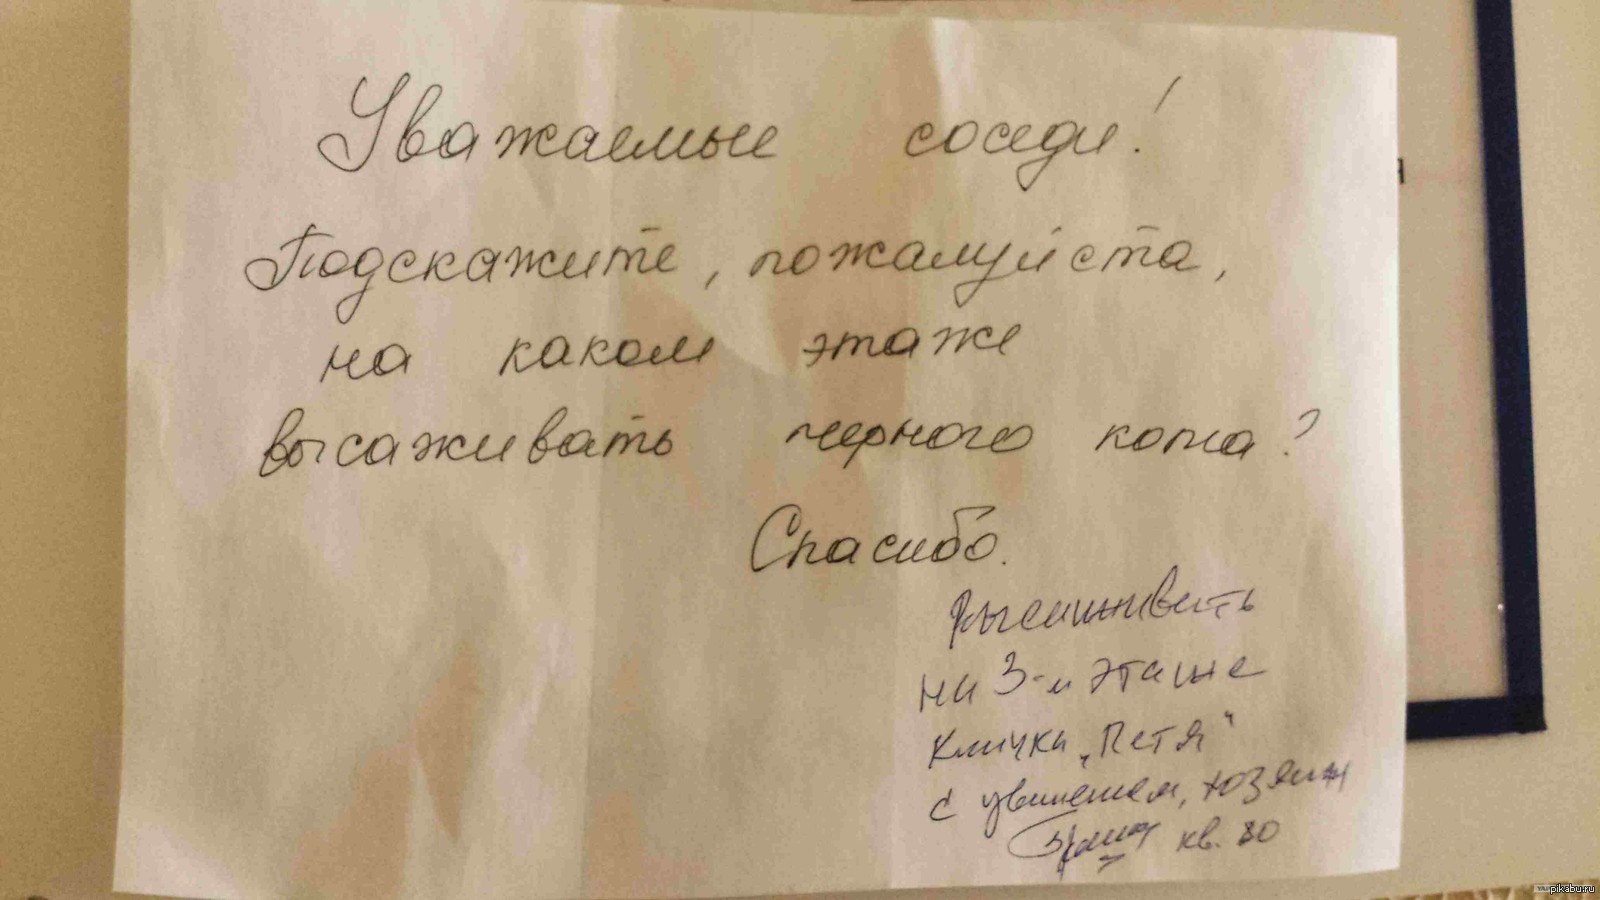 Уважаемые соседи!
Подскажите, пожалуйста,
на каком этаже
высаживать черного кота?
Спасибо.
Высаживать
на 3-м этаже
Кличка „Петя"
с уважением, хозяин
кв. 80
pikabu.ru